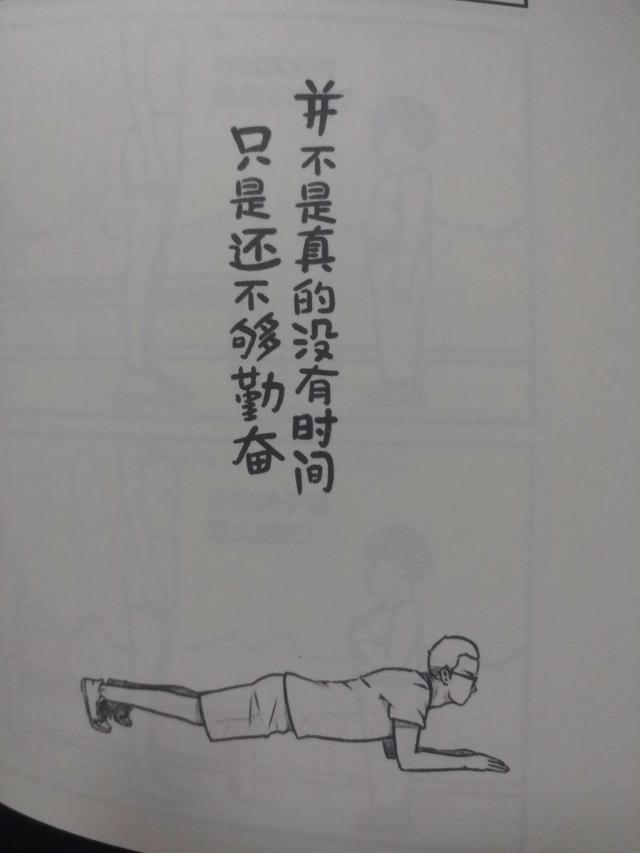 并不是真的没有时间
只是还不够勤奋